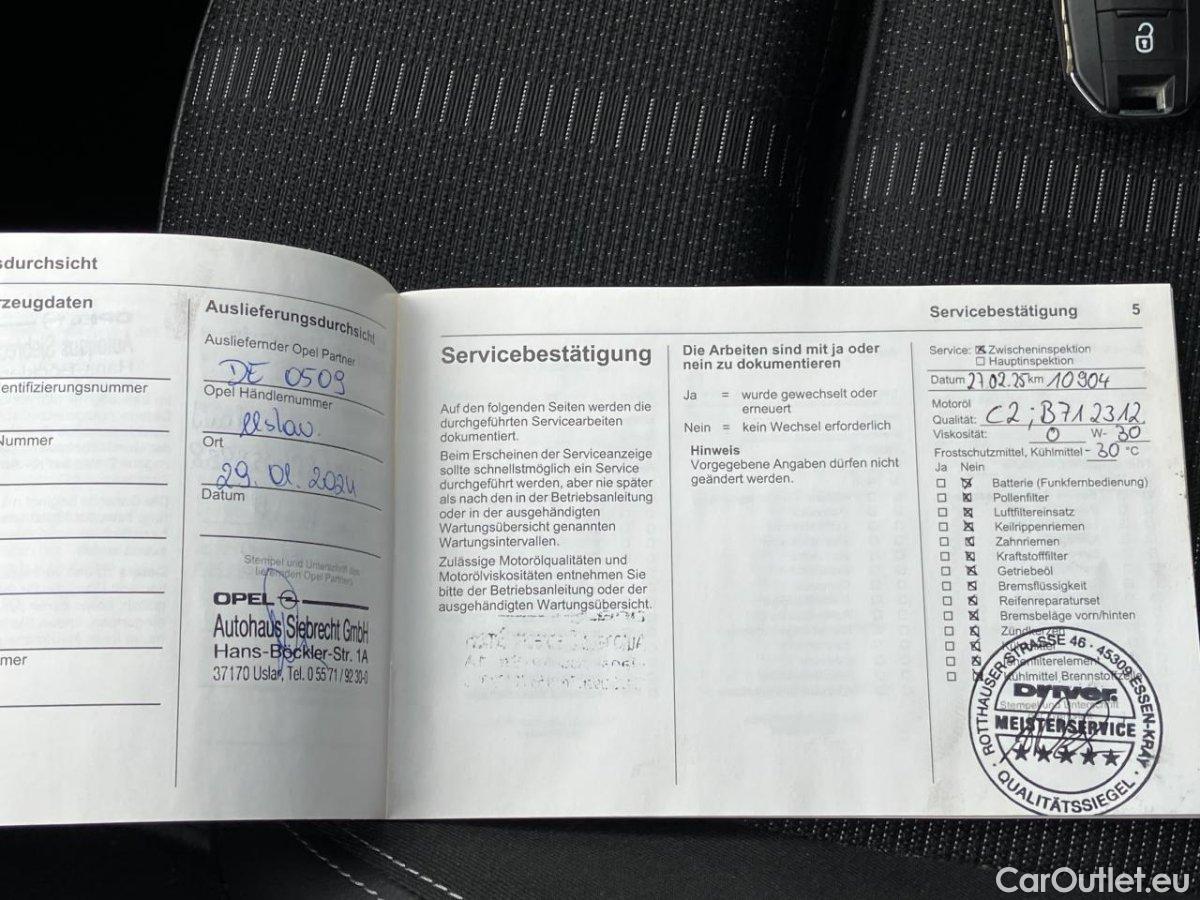 sdurchsicht
rzeugdaten
entifizierungsnummer
Nummer
mer
Auslieferungsdurchsicht
Ausliefernder Opel Partner
DE 0509
Opel Händlernummer
Uslar.
Ort
29.01.2024
Datum
Stempel und Unterschrift des
liefernden Opel Partners
OPEL
Autohaus Siebrecht GmbH
Hans-Böckler-Str. 1A
37170 Uslar, Tel. 0 55 71 / 92 30-0
Servicebestätigung
Auf den folgenden Seiten werden die
durchgeführten Servicearbeiten
dokumentiert.
Beim Erscheinen der Serviceanzeige
sollte schnellstmöglich ein Service
durchgeführt werden, aber nie später
als nach den in der Betriebsanleitung
oder in der ausgehändigten
Wartungsübersicht genannten
Wartungsintervallen.
Zulässige Motorölqualitäten und
Motorölviskositäten entnehmen Sie
bitte der Betriebsanleitung oder der
ausgehändigten Wartungsübersicht.
Die Arbeiten sind mit ja oder
nein zu dokumentieren
Ja = wurde gewechselt oder
erneuert
Nein = kein Wechsel erforderlich
Hinweis
Vorgegebene Angaben dürfen nicht
geändert werden.
Servicebestätigung 5
Service: Zwischeninspektion
Hauptinspektion
Datum 27.02.25 km 10904
Motoröl
Qualität: C2; B712312
Viskosität: 0 W- 30
Frostschutzmittel, Kühlmittel -30 °C
Ja Nein
Batterie (Funkfernbedienung)
Pollenfilter
Luftfiltereinsatz
Keilrippenriemen
Zahnriemen
Kraftstofffilter
Getriebeöl
Bremsflüssigkeit
Reifenreparaturset
Bremsbeläge vorn/hinten
Zündkerzen
Kühlmittel
Kühlmittel Brennstoffzelle
Stempel und Unterschrift
ROTTHAUSER STRASSE 46 · 45309 ESSEN-KRAY
DRIVER
MEISTERSERVICE
QUALITÄTSSIEGEL
CarOutlet.eu